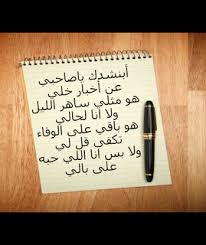 أبنشدك ياصاحبي
عن أخبار خلي
هو مثلي ساهر الليل
ولا انا لحالي
هو باقي على الوفاء
تكفى قل لي
ولا بس انا اللي حبه
على بالي